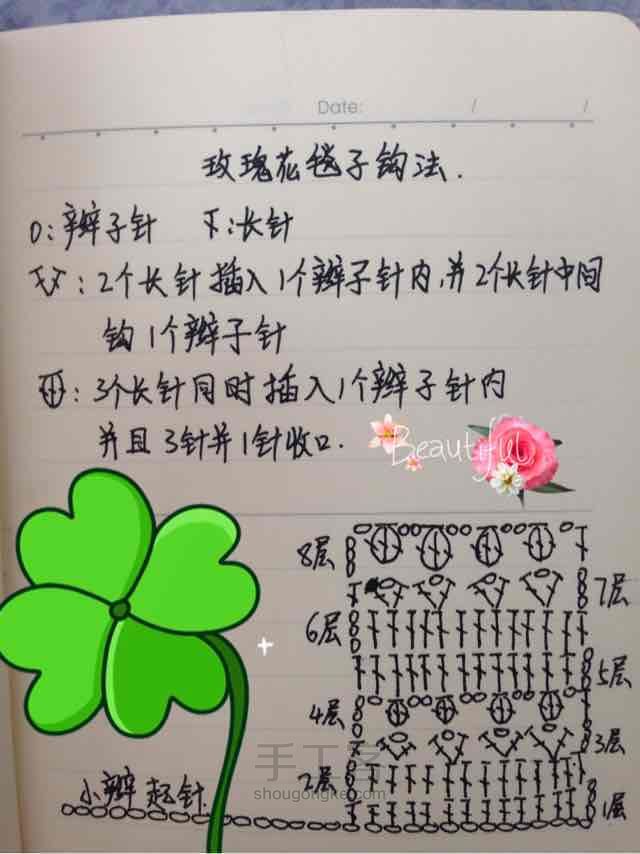 Date: / /
玫瑰花毯子钩法.
O:辫子针 下:长针
:2个长针插入1个辫子针内,并2个长针中间
钩1个辫子针
:3个长针同时插入1个辫子针内
并且3针并1针收口.
Beautiful
8层
7层
6层
5层
4层
3层
手工客
2层
小辫起针
shougongke.com
1层